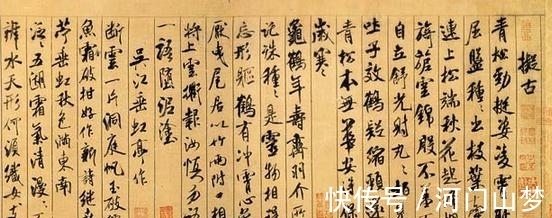 擬古
青松勁挺姿凌霄
屈盤種〻出枝葉
連上松端秋花起
旖旎雲錦殷不羞
自立舒光射丸〻
吐子效鶴疑縮頸
青松本無華安得
歲寒
龜鶴年壽齊羽介所
託殊種〻是靈物相
忘形軀鶴有沖霄心
厭曳尾居以竹兩附
將上雲衢報汝慎勿
一語墮泥塗
吳江垂虹亭作
斷雲一片洞庭帆玉破
魚霜破柑好作新詩繼
苧垂虹秋色滿東南
泛〻五湖霜氣清漫〻
辨水天形何須織女支
快传号/河门山梦